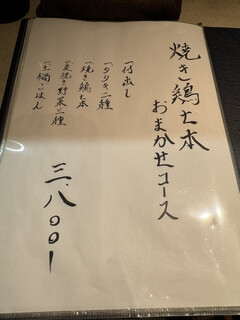 焼き鶏七本
おまかせコース
一付出し
一タタキ二種
一焼き鶏七本
一炭焼き野菜二種
一土鍋ごはん
三、八〇〇ー